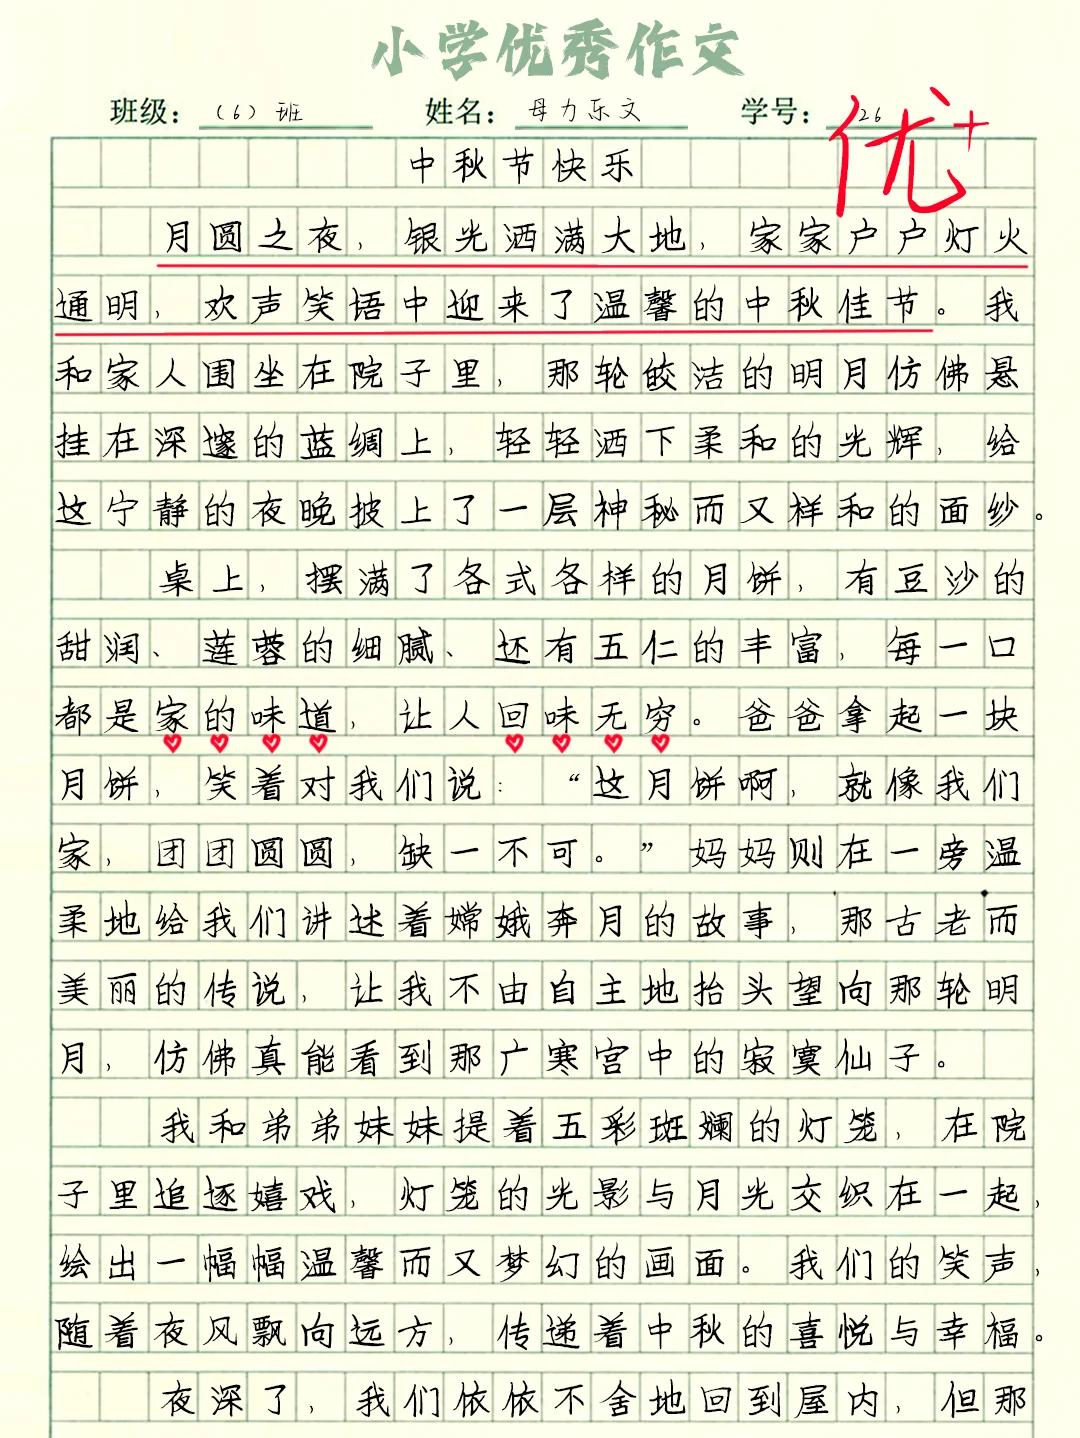 小学优秀作文
班级: (6)班 姓名: 母力乐文 学号: 26
优+
中秋节快乐
月圆之夜，银光洒满大地，家家户户灯火
通明，欢声笑语中迎来了温馨的中秋佳节。我
和家人围坐在院子里，那轮皎洁的明月仿佛悬
挂在深邃的蓝绸上，轻轻洒下柔和的光辉，给
这宁静的夜晚披上了一层神秘而又样和的面纱。
桌上，摆满了各式各样的月饼，有豆沙的
甜润、莲蓉的细腻、还有五仁的丰富，每一口
都是家的味道，让人回味无穷。爸爸拿起一块
月饼，笑着对我们说：“这月饼啊，就像我们
家，团团圆圆，缺一不可。”妈妈则在一旁温
柔地给我们讲述着嫦娥奔月的故事，那古老而
美丽的传说，让我不由自主地抬头望向那轮明
月，仿佛真能看到那广寒宫中的寂寞仙子。
我和弟弟妹妹提着五彩斑斓的灯笼，在院
子里追逐嬉戏，灯笼的光影与月光交织在一起，
绘出一幅幅温馨而又梦幻的画面。我们的笑声，
随着夜风飘向远方，传递着中秋的喜悦与幸福。
夜深了，我们依依不舍地回到屋内，但那